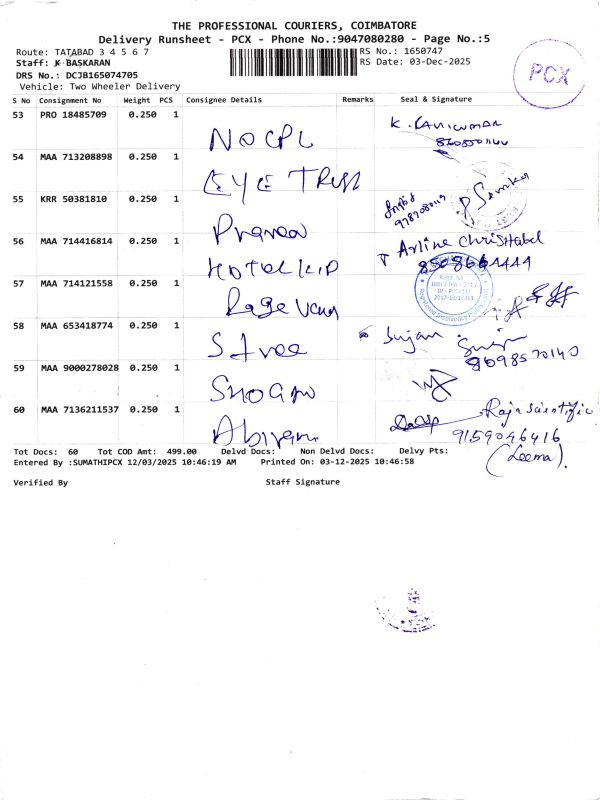 THE PROFESSIONAL COURIERS, COIMBATORE
Delivery Runsheet - PCX - Phone No.:9047080280 - Page No.:5
Route: TATABAD 3 4 5 6 7
RS No.: 1650747
Staff: K BASKARAN
RS Date: 03-Dec-2025
DRS No.: DCJB165074705
Vehicle: Two Wheeler Delivery
PCX
S No Consignment No Weight PCS Consignee Details Remarks Seal & Signature
53 PRO 18485709 0.250 1
NOCPL
K. RAVIKUMAR
54 MAA 713208898 0.250 1
EYE TRUST
55 KRR 50381810 0.250 1
Praveen
56 MAA 714416814 0.250 1
HOTEL KIP
Arline Christabel
57 MAA 714121558 0.250 1
58 MAA 653418774 0.250 1
Sujan
8098570140
59 MAA 9000278028 0.250 1
60 MAA 7136211537 0.250 1
Abirami
Raja Scientific
9159046416
(Leema).
Tot Docs: 60 Tot COD Amt: 499.00 Delvd Docs: Non Delvd Docs: Delvy Pts:
Entered By :SUMATHIPCX 12/03/2025 10:46:19 AM Printed On: 03-12-2025 10:46:58
Verified By Staff Signature